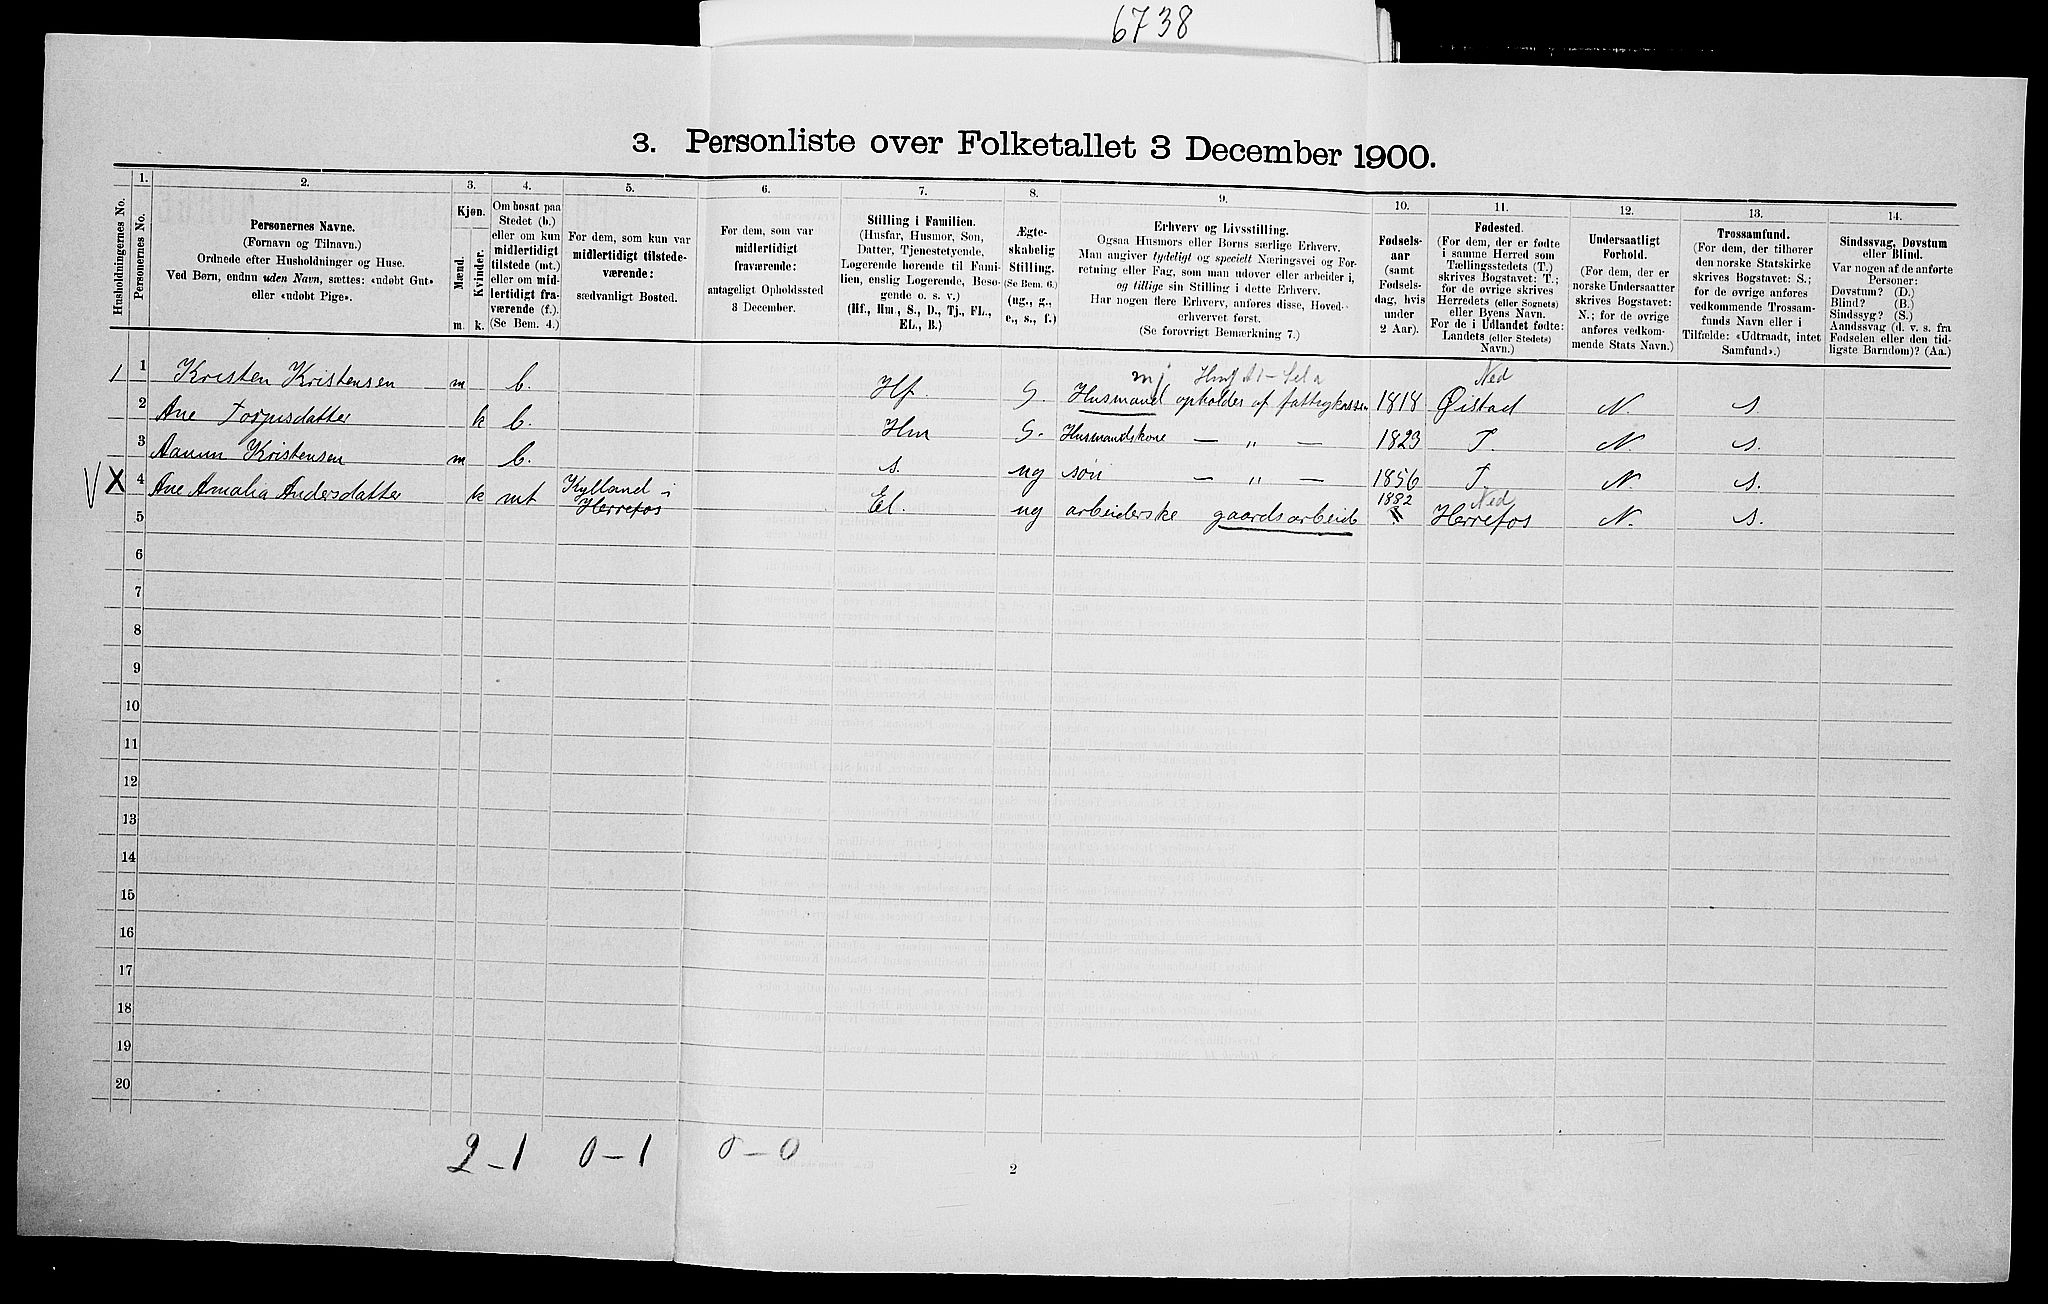 6738
3. Personliste over Folketallet 3 December 1900.
1. 2. 3. 4. 5. 6. 7. 8. 9. 10. 11. 12. 13. 14.
Husholdningernes No.
Personernes No.
Personernes Navne.
(Fornavn og Tilnavn.)
Ordnede efter Husholdninger og Huse.
Ved Børn, endnu uden Navn, sættes: «udøbt Gut»
eller «udøbt Pige».
Kjøn.
Mænd.
Kvinder.
m. k.
Om bosat paa
Stedet (b.)
eller om kun
midlertidigt
tilstede (mt.)
eller om mid-
lertidigt fra-
værende (f.).
(Se Bem. 4.)
For dem, som kun var
midlertidigt tilstede-
værende:
sædvanligt Bosted.
For dem, som var
midlertidigt
fraværende:
antageligt Opholdssted
3 December.
Stilling i Familien.
(Husfar, Husmor, Søn,
Datter, Tjenestetyende,
Logerende hørende til Fami-
lien, enslig Logerende, Besø-
gende o. s. v.)
(Hf., Hm., S., D., Tj., FL.,
EL., B.)
Ægte-
skabelig
Stilling.
(Se Bem. 6.)
(ug., g.,
e., s., f.)
Erhverv og Livsstilling.
Ogsaa Husmors eller Børns særlige Erhverv.
Man angiver tydeligt og specielt Næringsvei og For-
retning eller Fag, som man udøver eller arbeider i,
og tillige sin Stilling i dette Erhverv.
Har nogen flere Erhverv, anføres disse, Hoved-
erhvervet først.
(Se forøvrigt Bemærkning 7.)
Fødsels-
aar
(samt
Fødsels-
dag, hvis
under
2 Aar).
Fødested.
(For dem, der er fødte
i samme Herred som
Tællingsstedets (T.)
skrives Bogstavet: T.;
for de øvrige skrives
Herredets (eller Sognets)
eller Byens Navn.
For de i Udlandet fødte:
Landets (eller Stedets)
Navn.)
Undersaatligt
Forhold.
(For dem, der er
norske Undersaatter
skrives Bogstavet:
N.; for de øvrige
anføres vedkom-
mende Stats Navn.)
Trossamfund.
(For dem, der tilhører
den norske Statskirke
skrives Bogstavet: S.;
for de øvrige anføres
vedkommende Trossam-
funds Navn eller i
Tilfælde: «Udtraadt, intet
Samfund».)
Sindssvag, Døvstum
eller Blind.
Var nogen af de anførte
Personer:
Døvstum? (D.)
Blind? (B.)
Sindssyg? (S.)
Aandssvag (d. v. s. fra
Fødselen eller den tid-
ligste Barndom)? (Aa.)
mj Ned
1 1 Kristen Kristensen m b. Hf. G. Husmand opholdes af fattigkassen 1818 Øistad N. S.
2 Ane Torjusdatter k b. Hm G. Husmandskone — „ — 1823 T. N. S.
3 Aanun Kristensen m b. s. ug søn — „ — 1856 T. N. S.
V X 4 Ane Amalia Andersdatter k mt Kylland i Herrefos El. ug arbeiderske gaardsarbeide 1882 Ned Herrefos N. S.
5
6
7
8
9
10
11
12
13
14
15
16
17
18
19
20
2-1 0-1 0-0
2